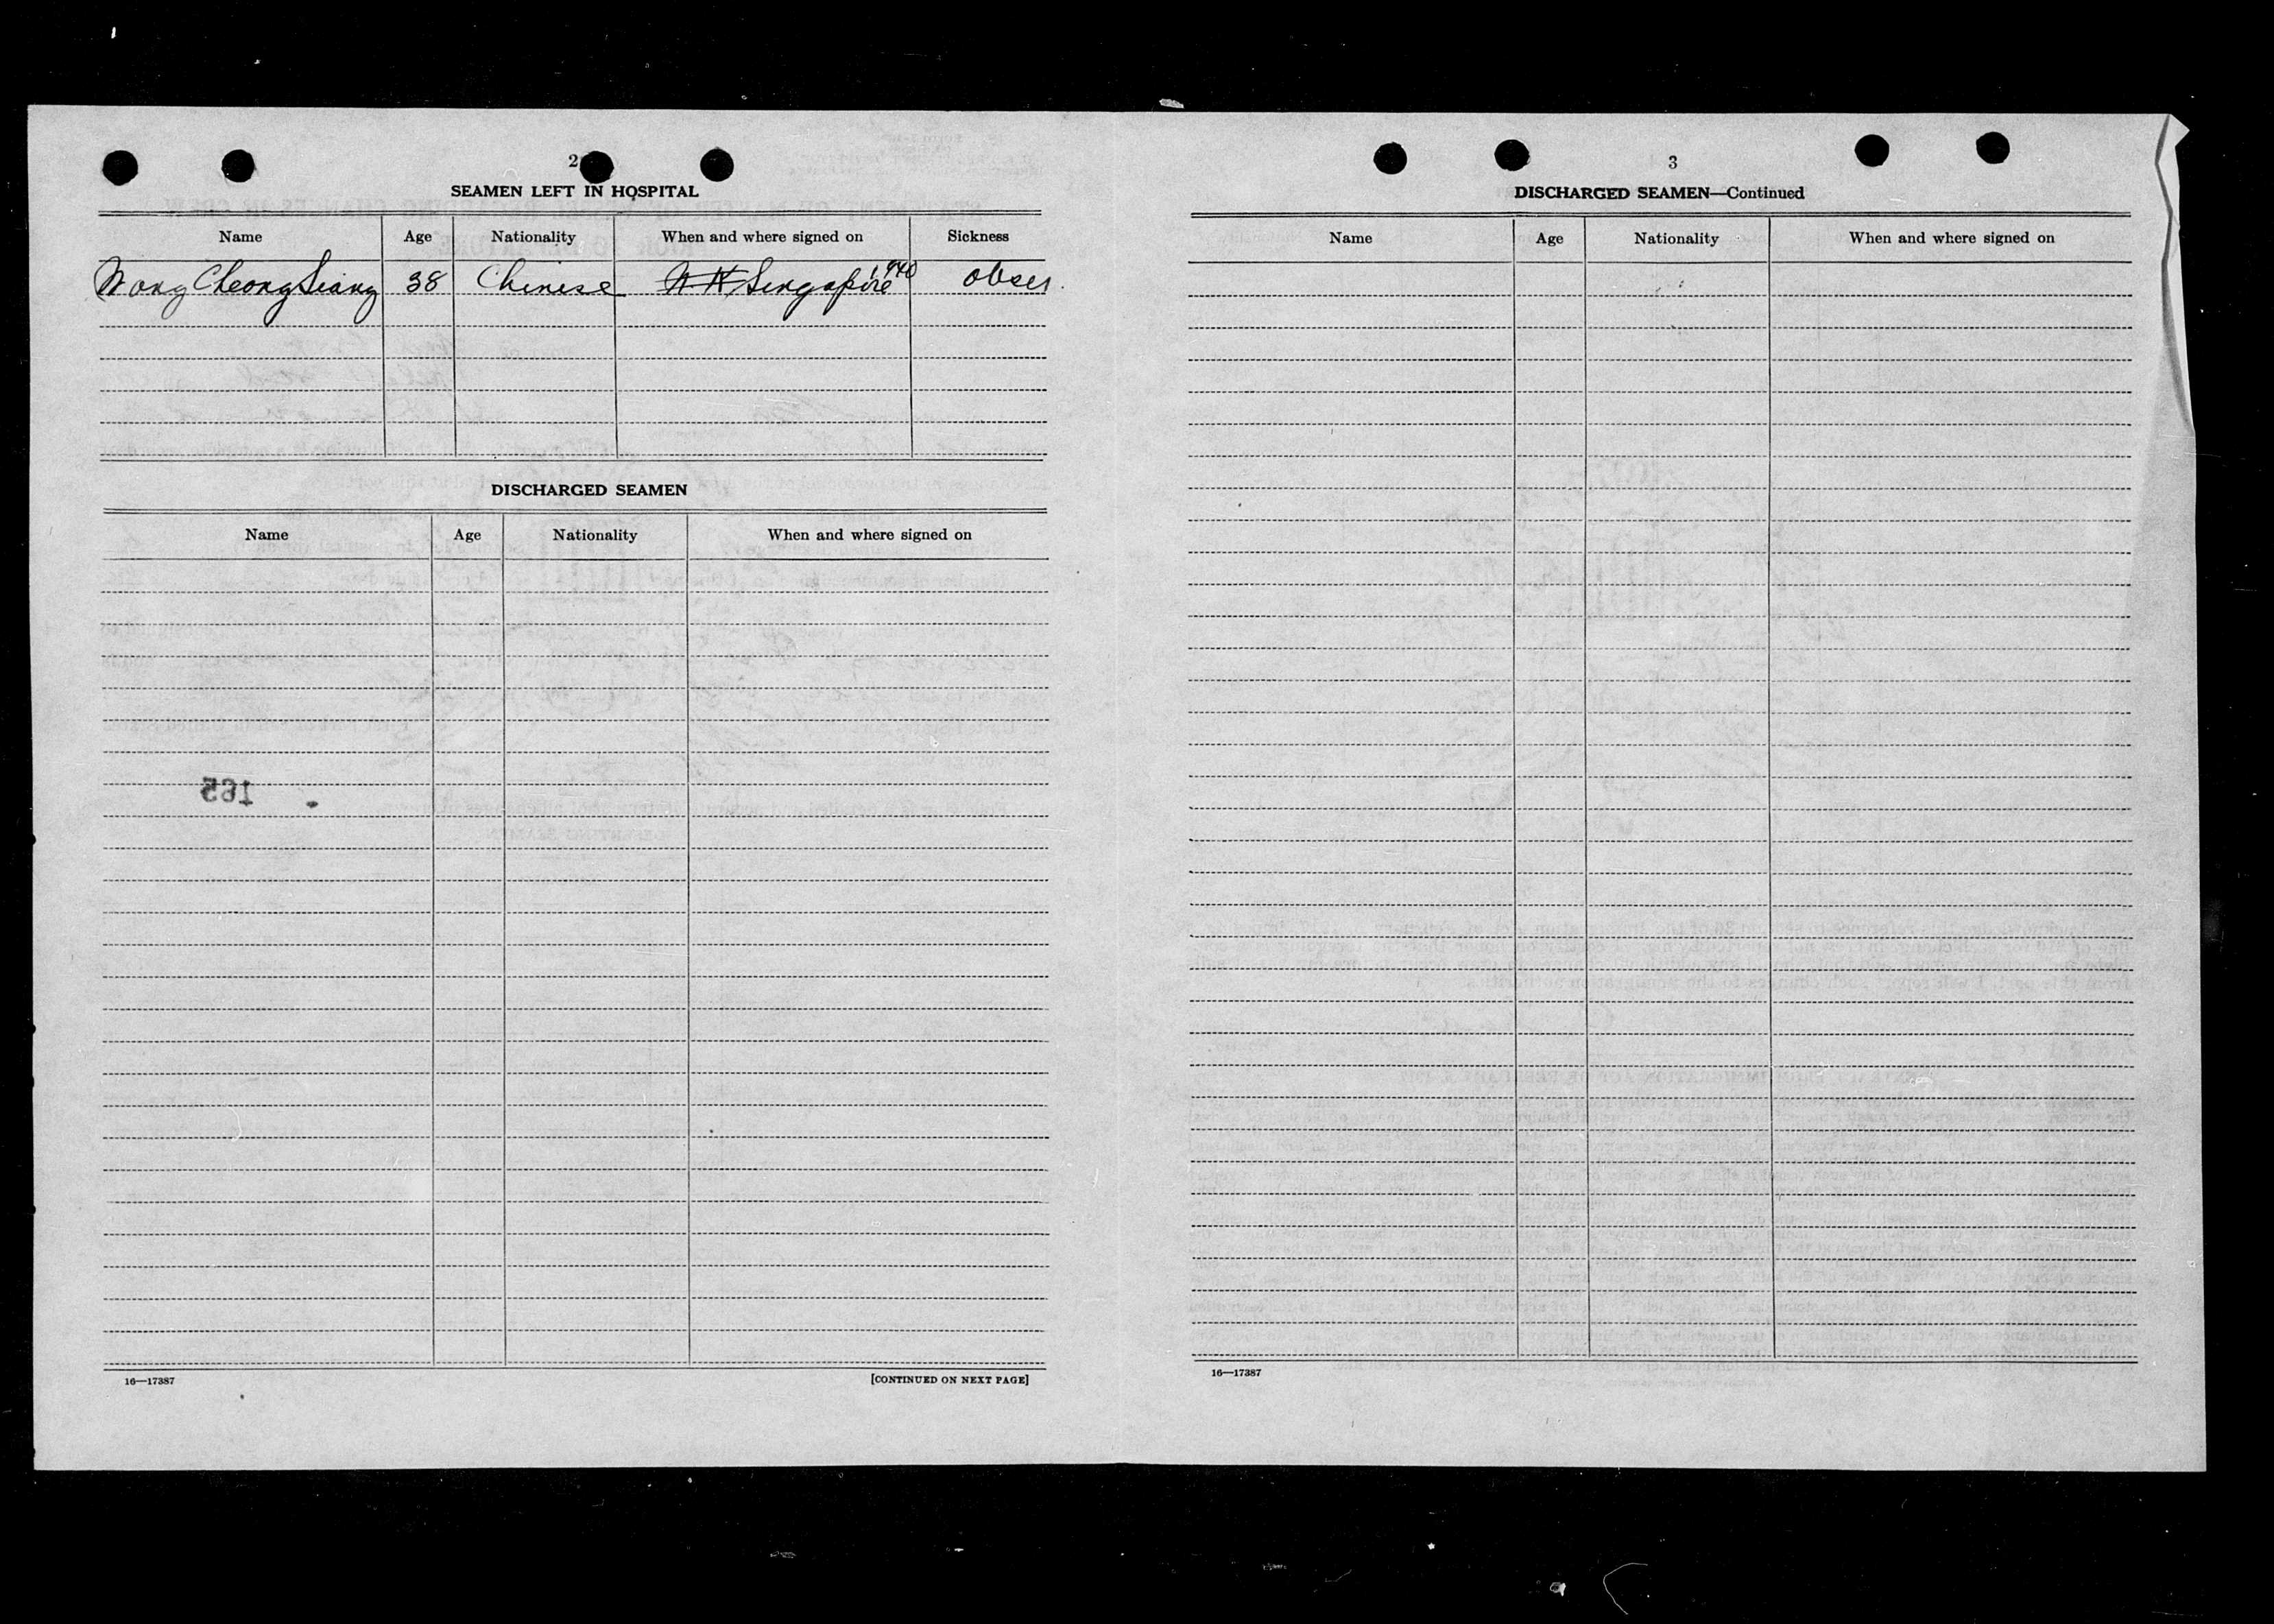 2
SEAMEN LEFT IN HOSPITAL
Name Age Nationality When and where signed on Sickness
Wong Cheong Siang 38 Chinese Singapore 1940 obser.
DISCHARGED SEAMEN
Name Age Nationality When and where signed on
165
16—17387 [CONTINUED ON NEXT PAGE]
3
DISCHARGED SEAMEN—Continued
Name Age Nationality When and where signed on
16—17387